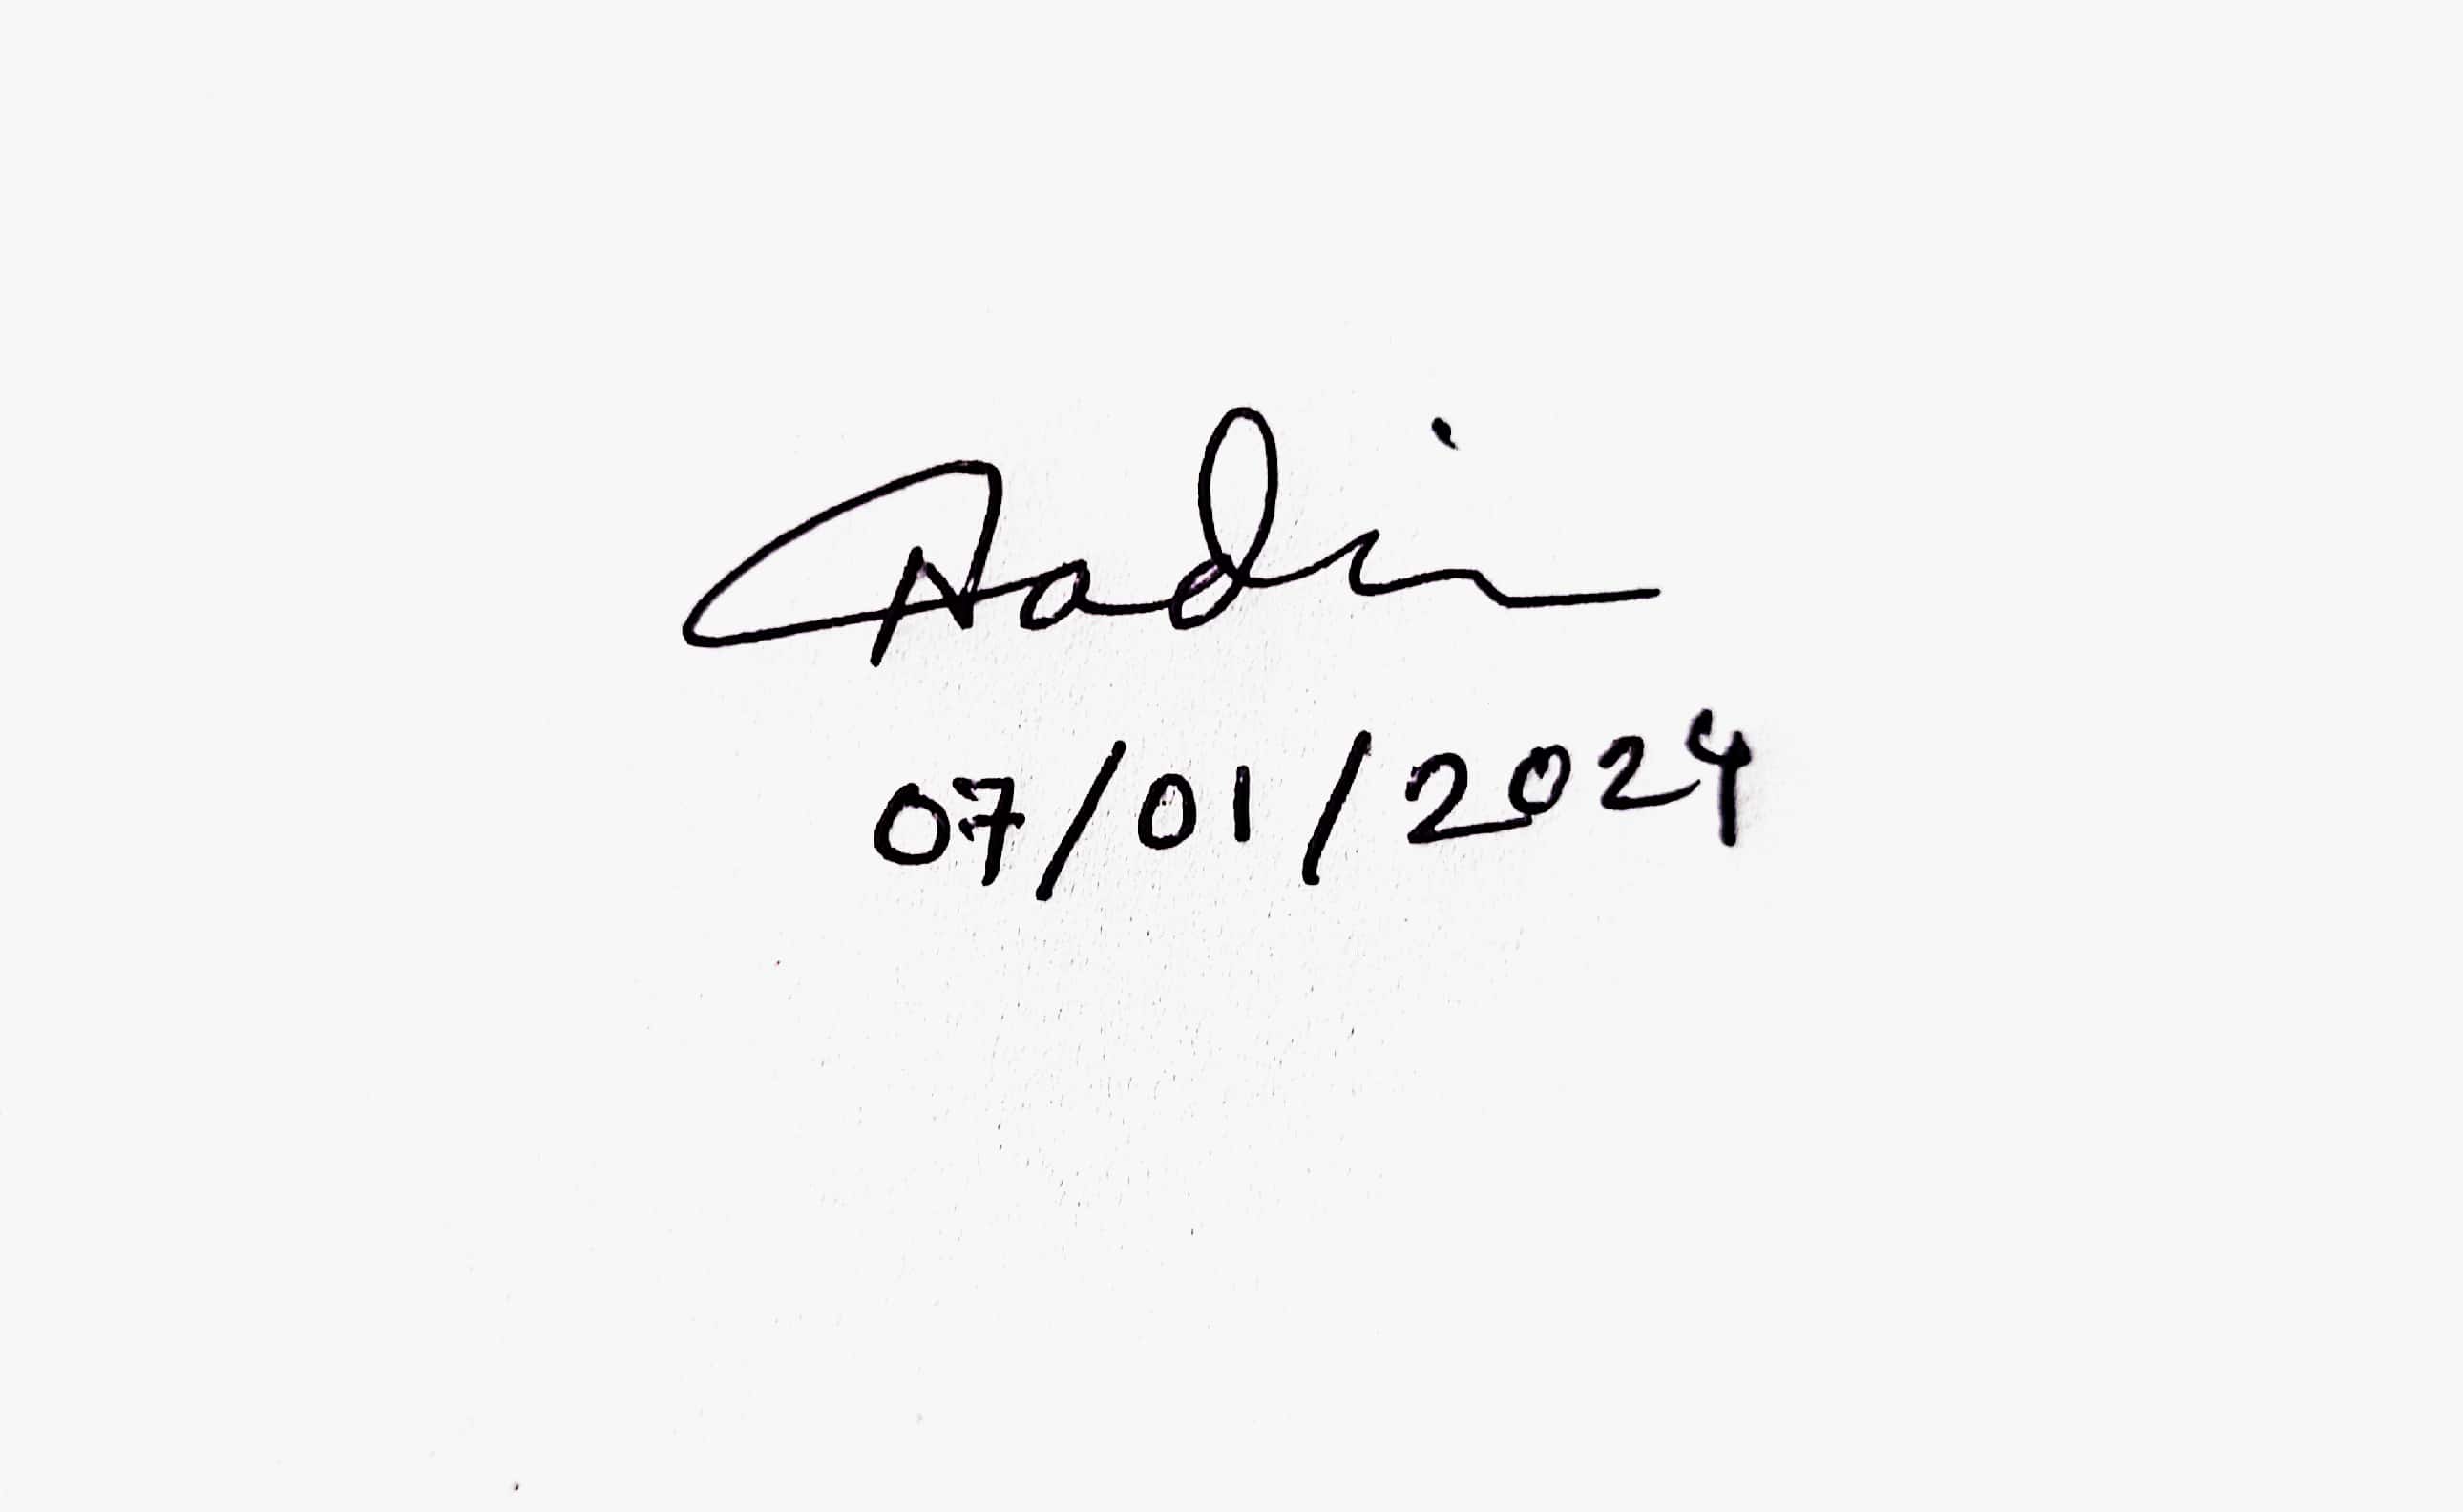 Nadin
07/01/2024